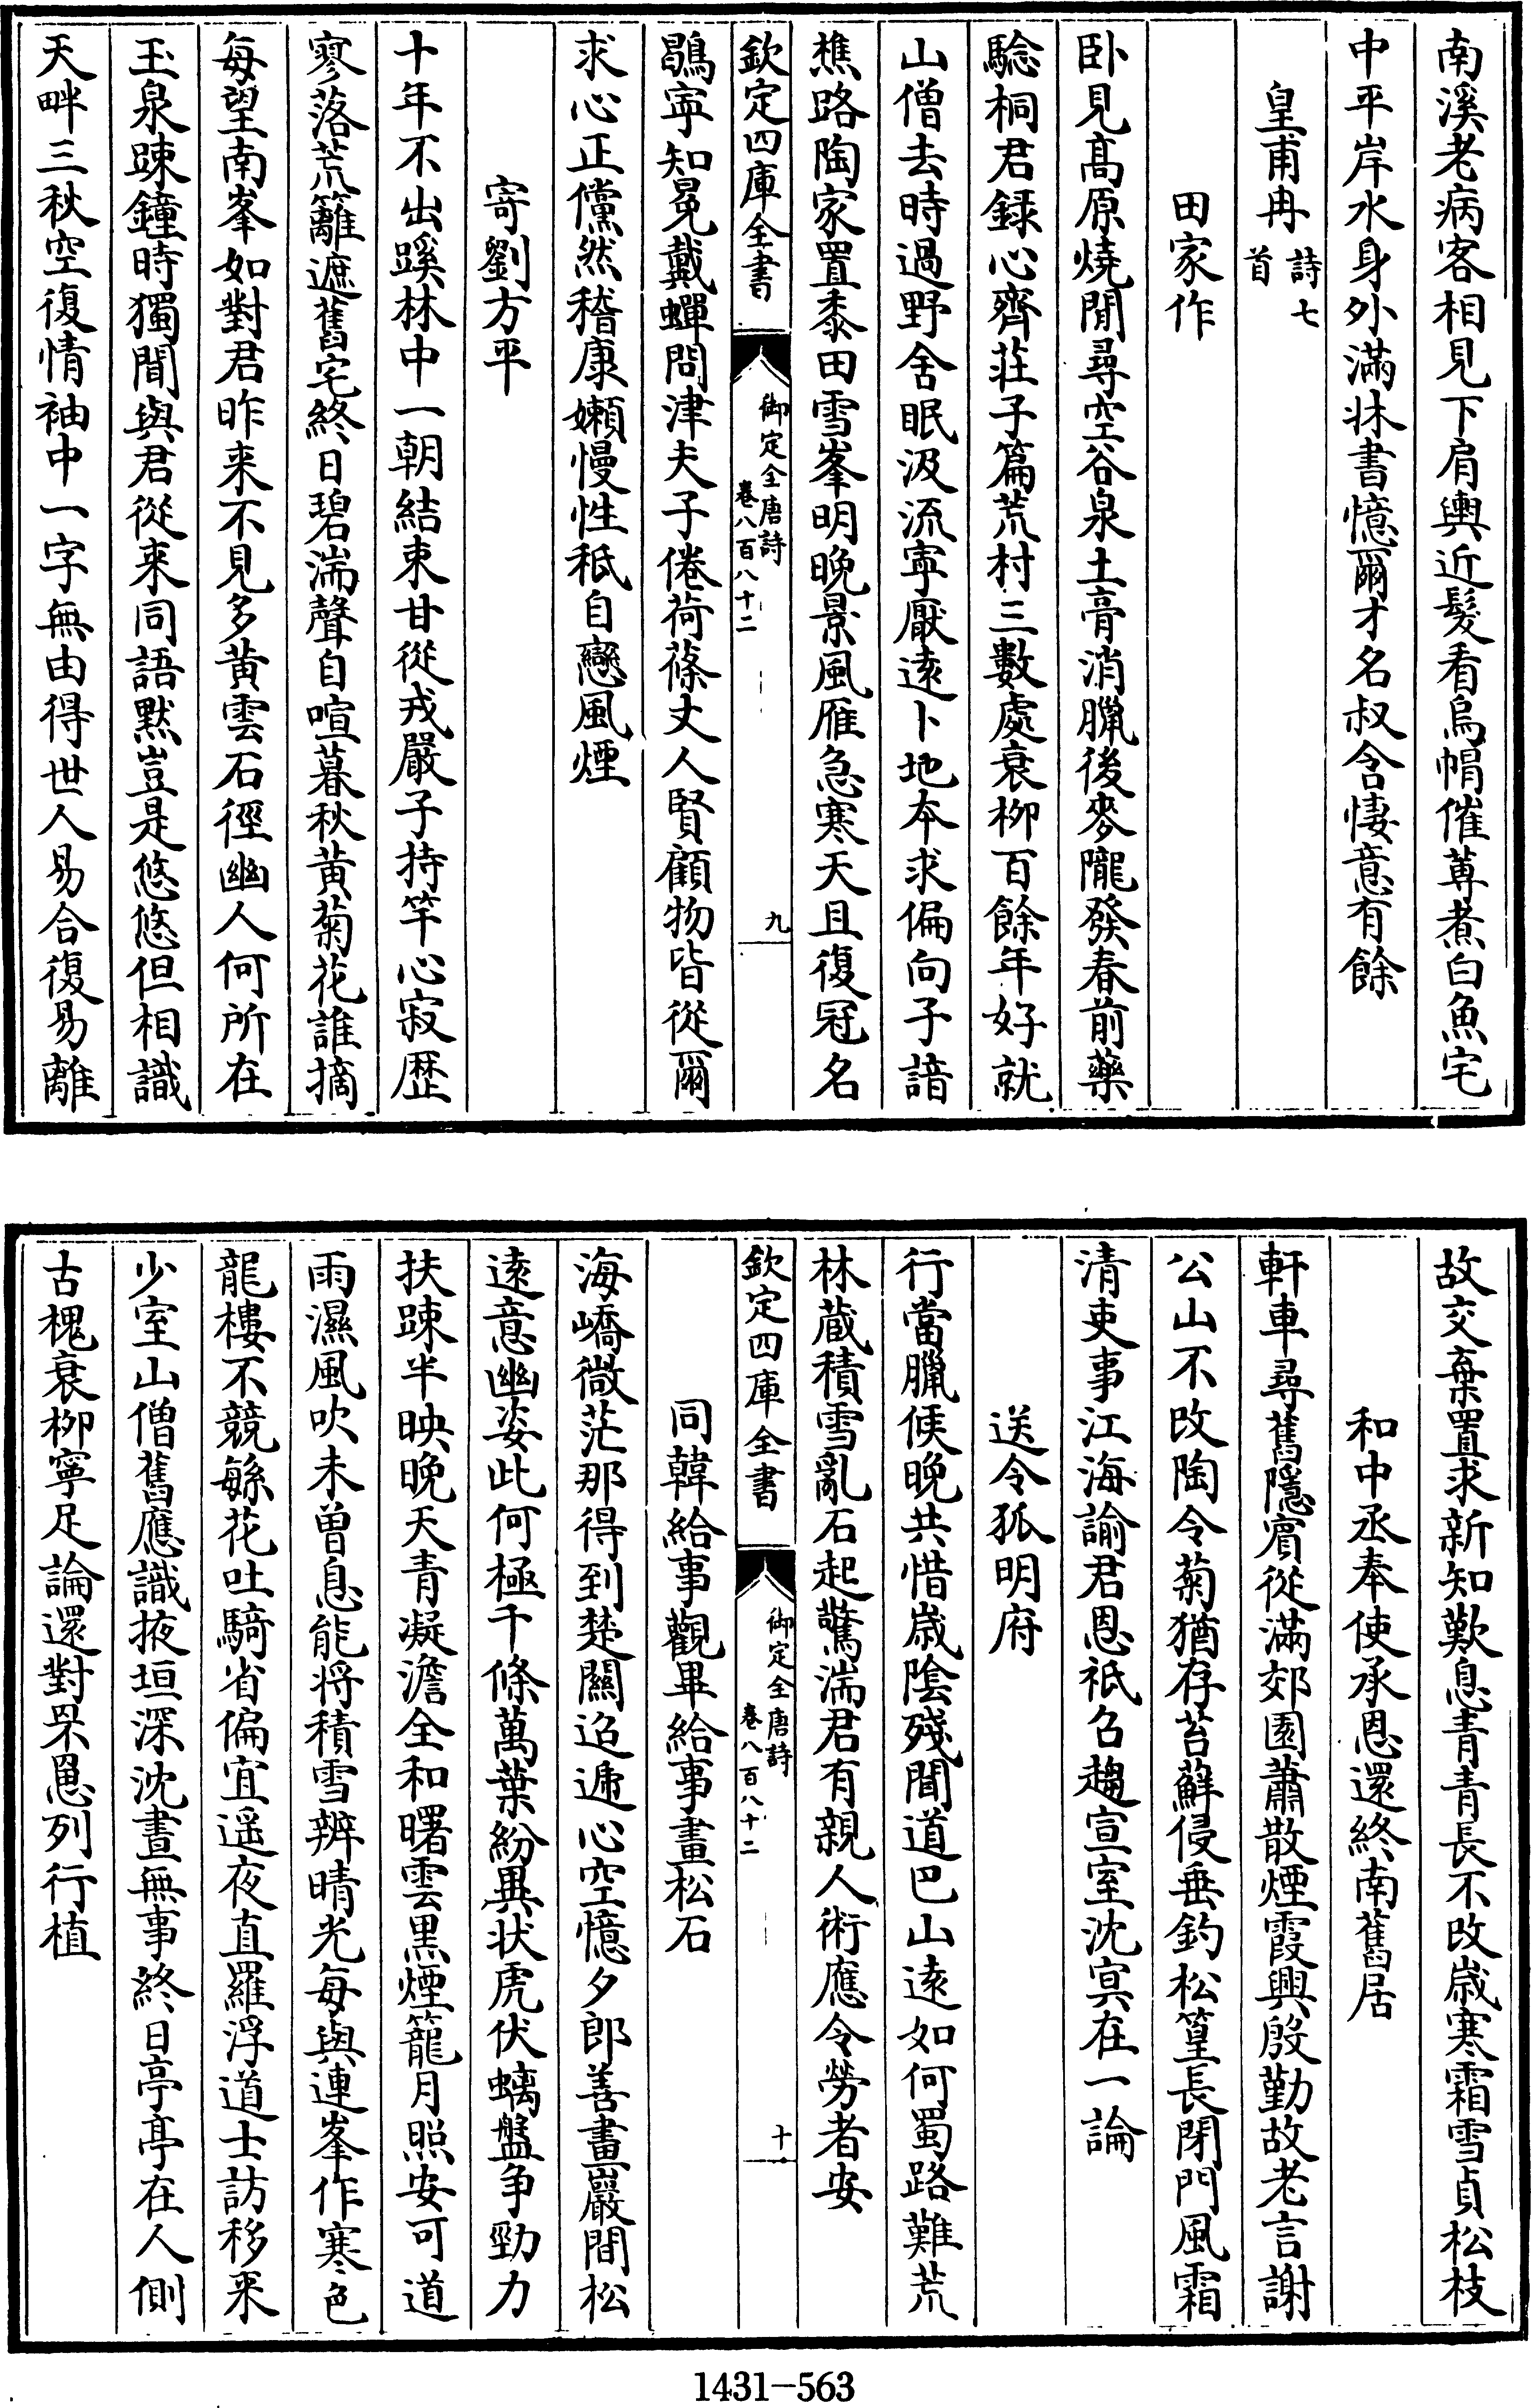 南溪老病客相見下肩輿近髮看烏帽催蓴煮白魚宅
中平岸水身外滿牀書憶爾才名叔含悽意有餘
皇甫冉詩七首
田家作
卧見髙原燒閒尋空谷泉土膏消臘後麥隴發春前藥
驗桐君録心齊莊子篇荒村三數處衰柳百餘年好就
山僧去時過野舍眠汲流寧厭逺卜地本求偏向子諳
樵路陶家置黍田雪峯明晚景風雁急寒天且復冠名
欽定四庫全書
御定全唐詩
卷八百八十二
九
鶡寧知冕戴蟬問津夫子倦荷蓧丈人賢顧物皆從爾
求心正儻然稽康嬾慢性秪自戀風煙
寄劉方平
十年不出蹊林中一朝結束甘從戎嚴子持竿心寂歴
寥落荒籬遮舊宅終日碧湍聲自喧暮秋黄菊花誰摘
每望南峯如對君昨来不見多黄雲石徑幽人何所在
玉泉踈鐘時獨聞與君從来同語黙豈是悠悠但相識
天畔三秋空復情袖中一字無由得世人易合復易離
故交棄置求新知歎息青青長不改嵗寒霜雪貞松枝
和中丞奉使承恩還終南舊居
軒車尋舊隱賔從滿郊園蕭散煙霞興殷勤故老言謝
公山不改陶令菊猶存苔蘚侵垂釣松篁長閉門風霜
清吏事江海諭君恩祇召趨宣室沈冥在一論
送令狐明府
行當臘候晚共惜嵗陰殘聞道巴山逺如何蜀路難荒
林蔵積雪亂石起驚湍君有親人術應令勞者安
欽定四庫全書
御定全唐詩
卷八百八十二
十
同韓給事觀畢給事畫松石
海嶠微茫那得到楚關迢遞心空憶夕郎善畫巖間松
逺意幽姿此何極千條萬葉紛異状虎伏螭盤争勁力
扶踈半映晚天青凝澹全和曙雲黒煙籠月照安可道
雨濕風吹未曽息能将積雪辨晴光每與連峯作寒色
龍樓不競緐花吐騎省偏宜遥夜直羅浮道士訪移来
少室山僧舊應識掖垣深沈晝無事終日亭亭在人側
古槐衰柳寧足論還對罘罳列行植
1431-563